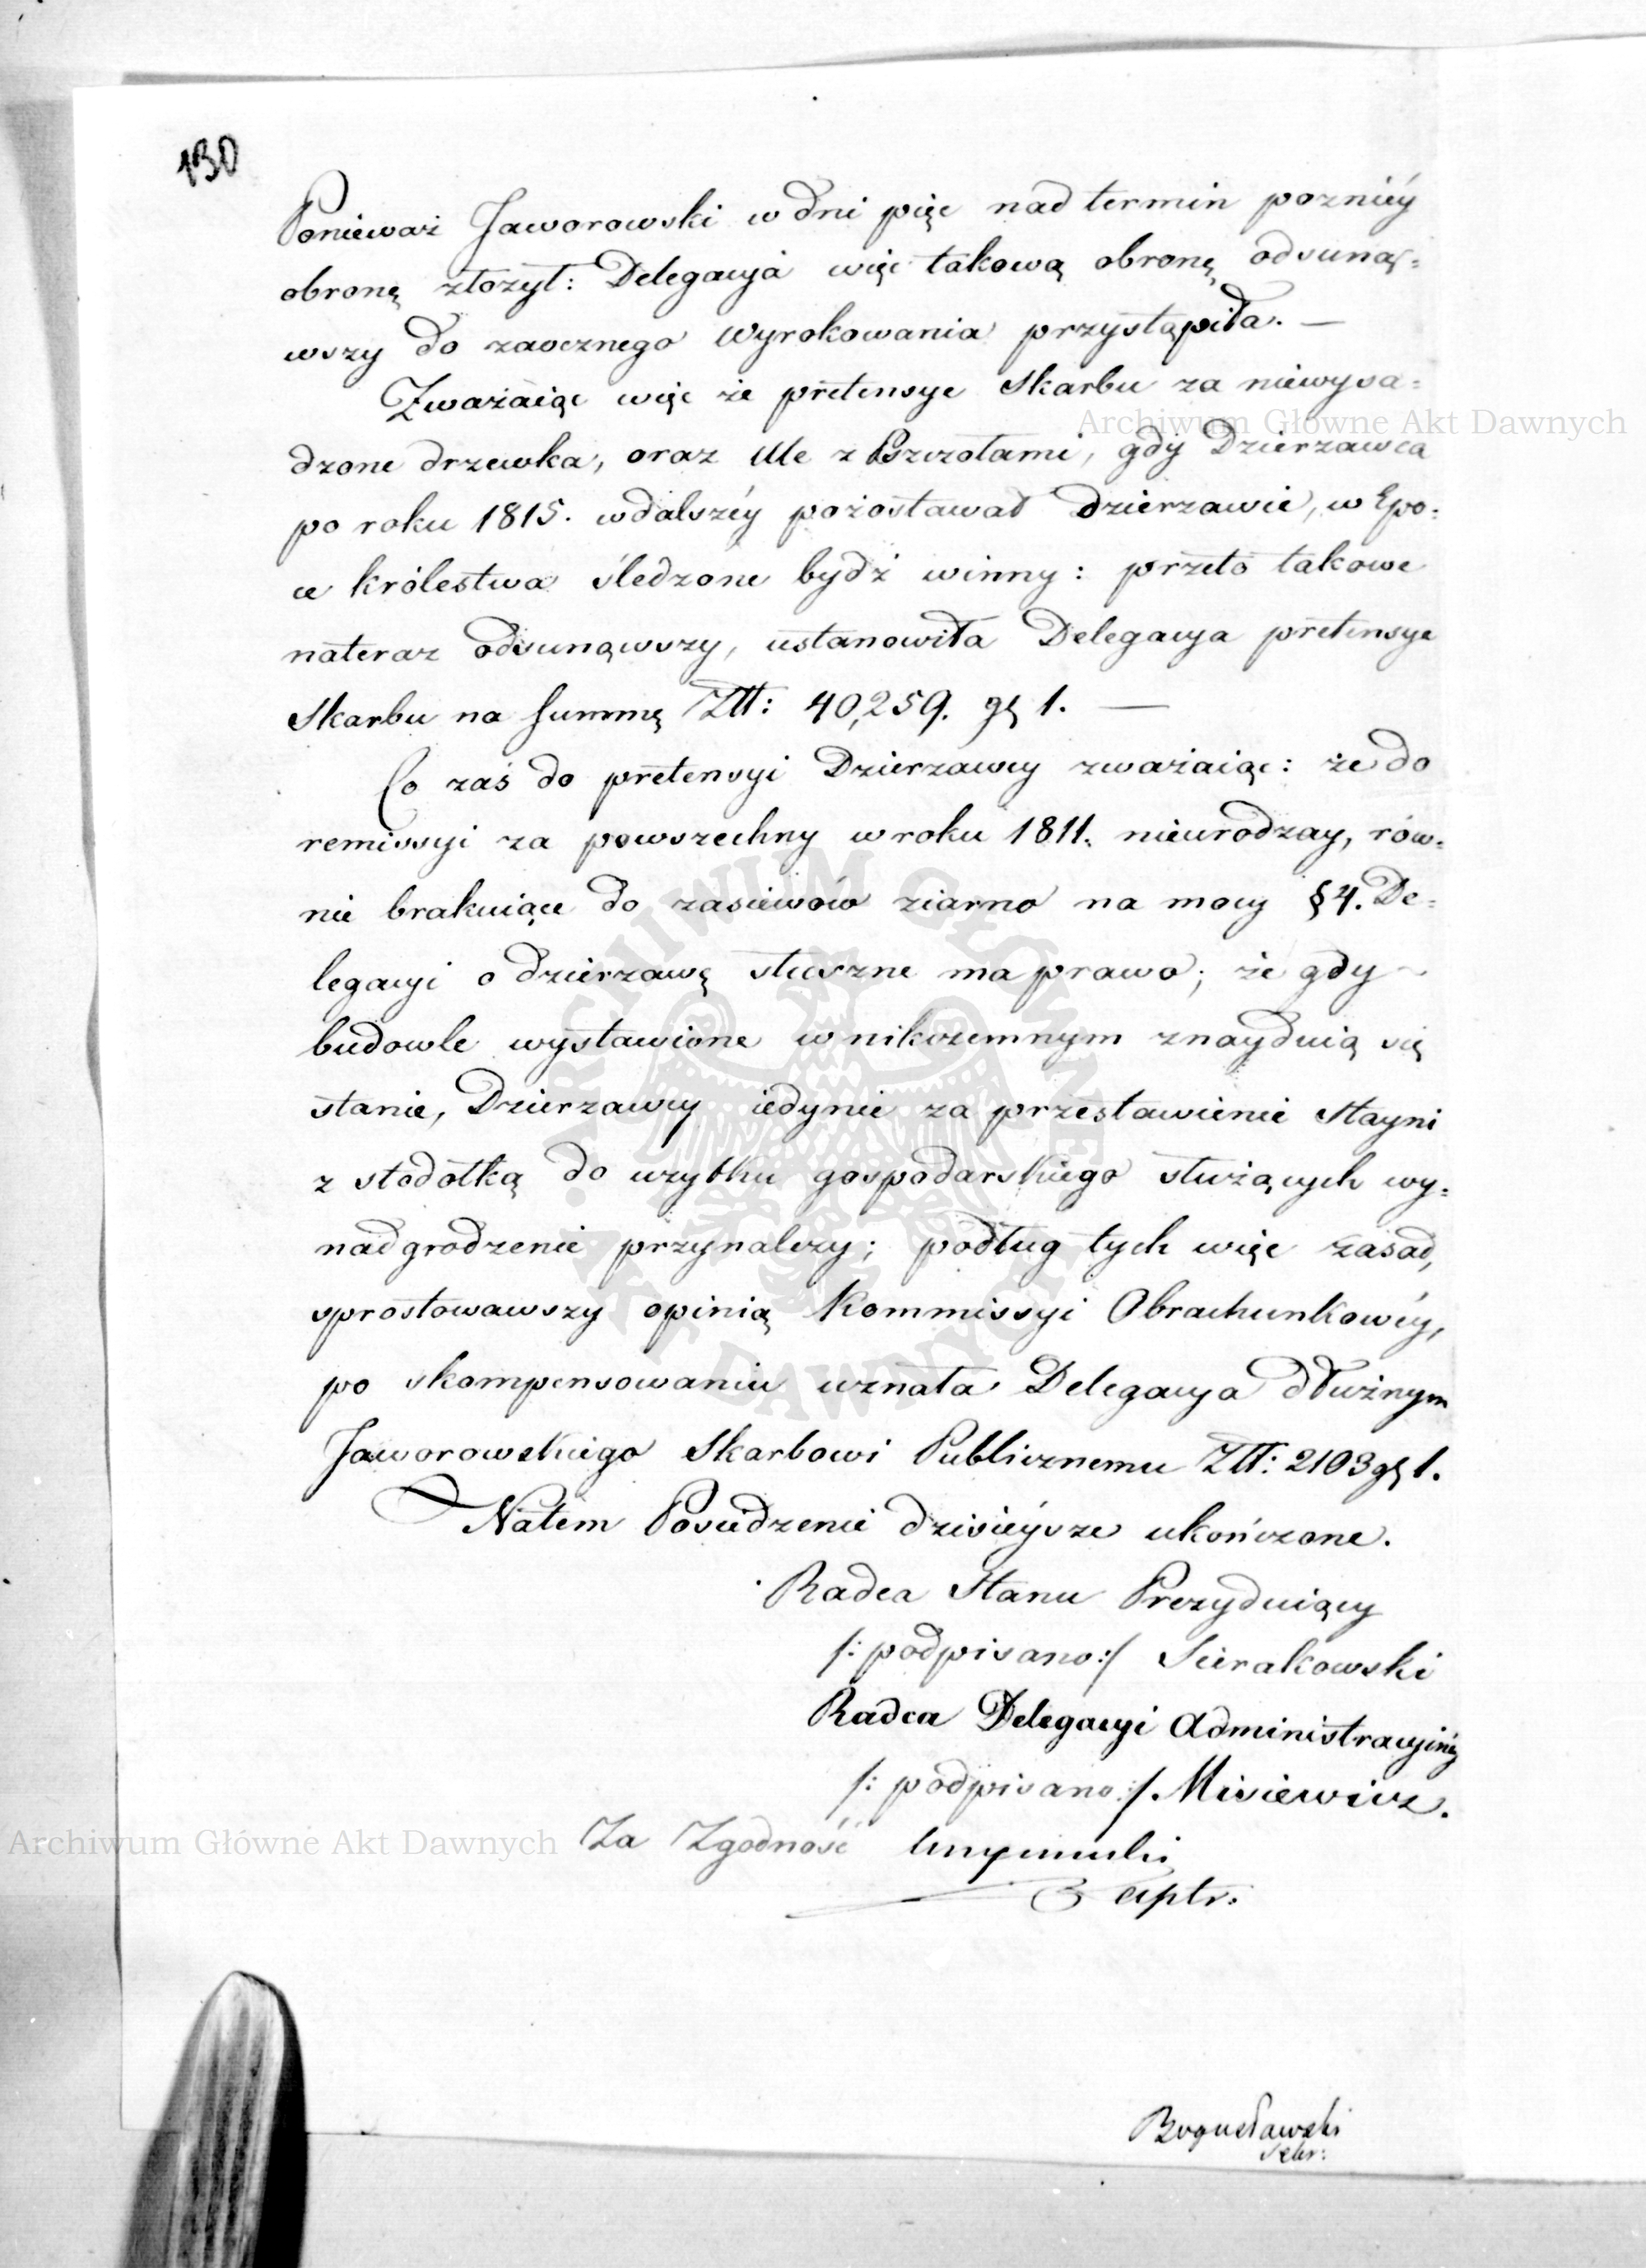 130
Ponieważ Jaworowski w dni pięć nad termin pozniéy
obronę złożył: Delegacya więc takową obronę odsuną=
wszy do zaocznego Wyrokowania przystąpiła. —
Zważaiąc więc że pretensye Skarbu za niewysa=
dzone drzewka, oraz Ule z Pszczołami, gdy Dzierzawca
po roku 1815. w dalszéy pozostawał Dzierzawie, w Epo=
ce królestwa śledzone bydź winny: przeto takowe
nateraz odsunąwszy, ustanowiła Delegacya pretensye
Skarbu na Summę Złł: 40,259. gr 1. —
Co zaś do pretensyi Dzierzawcy zważaiąc: że do
remissyi za powszechny w roku 1811. nieurodzay, rów=
nie brakuiące do zasiewów ziarno na mocy § 4. De=
legacyi o dzierzawę słuszne ma prawo; że gdy
budowle wystawione w nikczemnym znayduią się
stanie, Dzierzawcy iedynie za przestawienie Stayni
z stodołką do użytku gospodarskiego służących wy=
nadgrodzenie przynależy; podług tych więc zasad,
sprostowawszy opinią Kommissyi Obrachunkowéy,
po skompensowaniu uznała Delegacya dłużnym
Jaworowskiego Skarbowi Publicznemu Złł: 2103 gr 1.
Natem Posiedzenie dzisiéysze ukończone.
Radca Stanu Prezyduiący
/: podpisano :/ Sierakowski
Radca Delegacyi Administracyinéy
/: podpisano :/ Misiewicz.
Za Zgodność
Bogusławski
Sekr:
Archiwum Główne Akt Dawnych
Archiwum Główne Akt Dawnych
ARCHIWUM GŁÓWNE AKT DAWNYCH